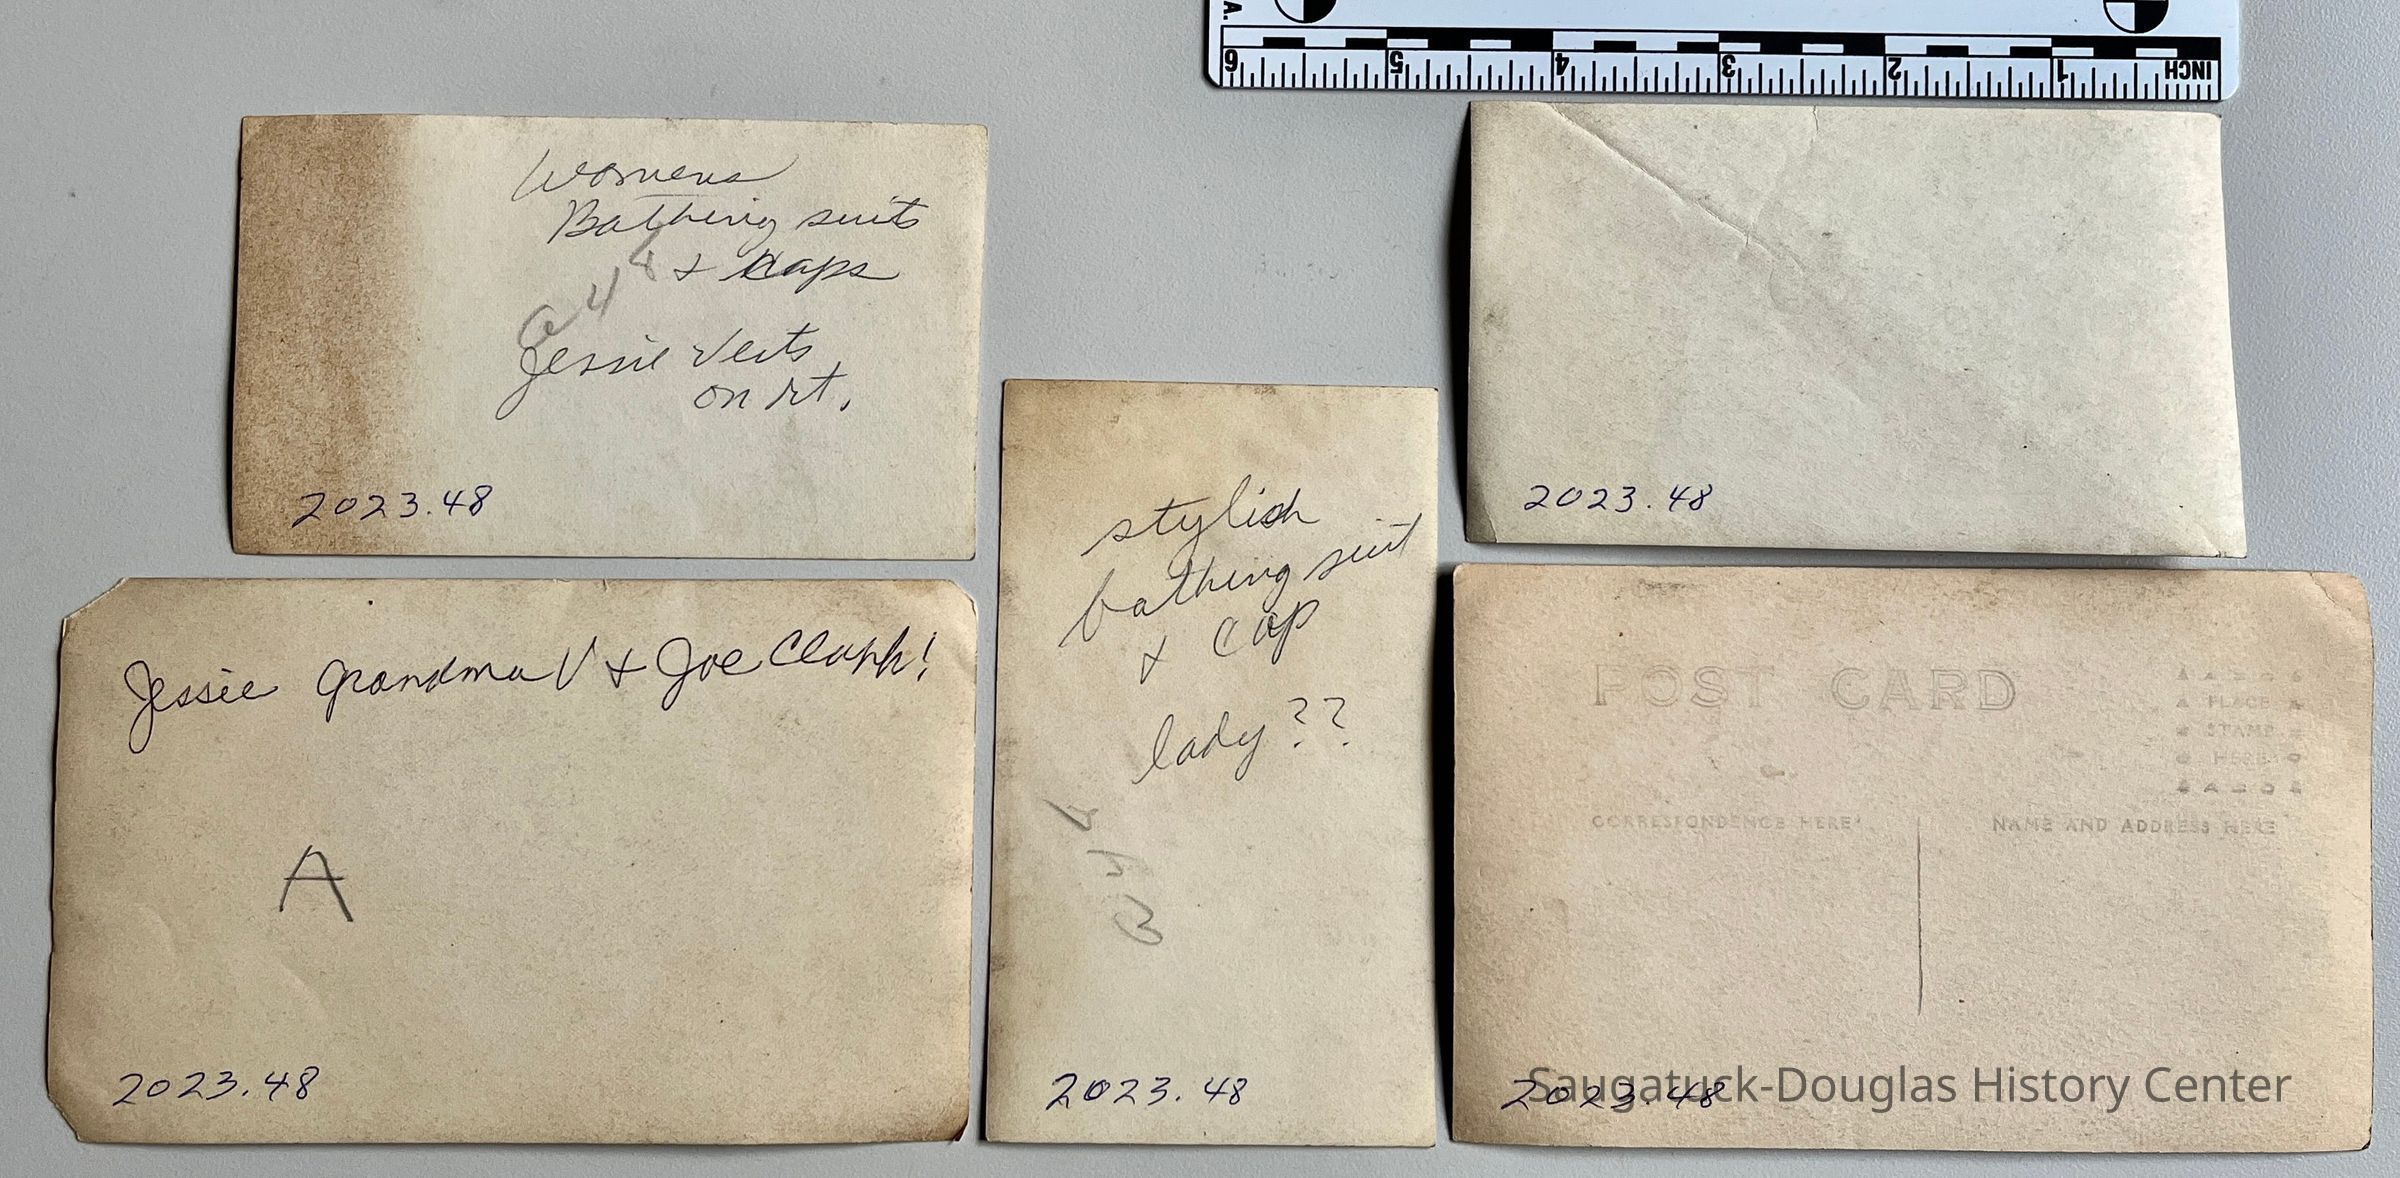 A.
INCH 1 2 3 4 5 6
Womens
Bathing suits
& Caps
Jessie Verts
on rt.
2023.48
2023.48
Jessie Grandma V & Joe
A
2023.48
stylish
bathing suit
& cap
lady??
2023.48
POST CARD
PLACE
STAMP
HERE
CORRESPONDENCE HERE
NAME AND ADDRESS HERE
2023.48
Saugatuck-Douglas History Center